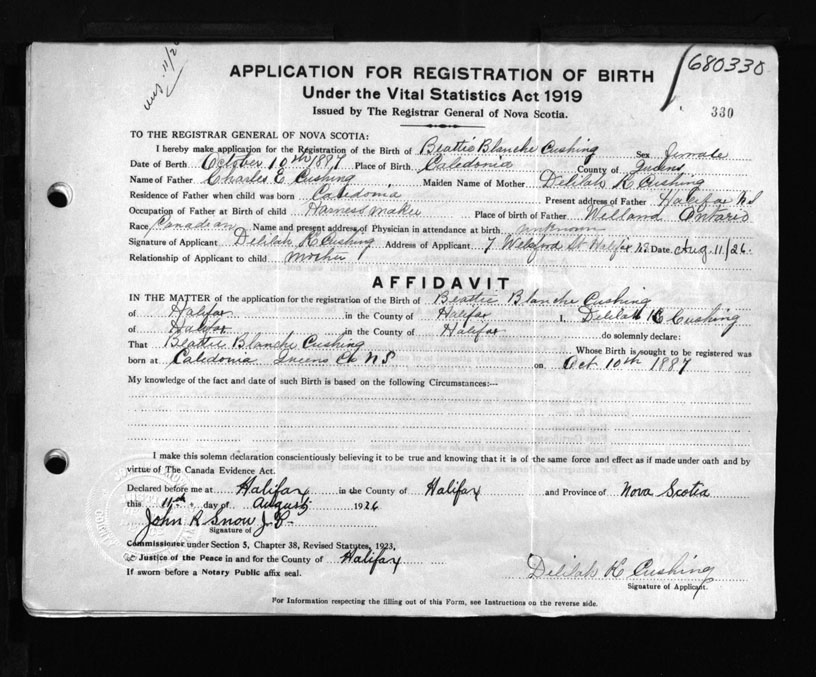 680330
Aug. 11/26
APPLICATION FOR REGISTRATION OF BIRTH
Under the Vital Statistics Act 1919
Issued by The Registrar General of Nova Scotia.
330
TO THE REGISTRAR GENERAL OF NOVA SCOTIA:
I hereby make application for the Registration of the Birth of Beattie Blanche Cushing Sex female
Date of Birth October 10th 1887 Place of Birth Caledonia County of Queens
Name of Father Charles E Cushing Maiden Name of Mother Delilah K Cushing
Residence of Father when child was born Caledonia Present address of Father Halifax NS
Occupation of Father at Birth of child Harness maker Place of birth of Father Welland Ontario
Race Canadian Name and present address of Physician in attendance at birth unknown
Signature of Applicant Delilah K Cushing Address of Applicant 7 Welsford St Halifax NS Date Aug. 11/26.
Relationship of Applicant to child mother
AFFIDAVIT
IN THE MATTER of the application for the registration of the Birth of Beattie Blanche Cushing
of Halifax in the County of Halifax I, Delilah K Cushing
of Halifax in the County of Halifax do solemnly declare:
That Beattie Blanche Cushing Whose Birth is sought to be registered was
born at Caledonia Queens Co NS on Oct 10th 1887
My knowledge of the fact and date of such Birth is based on the following Circumstances:—
I make this solemn declaration conscientiously believing it to be true and knowing that it is of the same force and effect as if made under oath and by
virtue of The Canada Evidence Act.
Declared before me at Halifax in the County of Halifax and Province of Nova Scotia
this 11th day of August 1926
John R Snow J.P.
Signature of
Commissioner under Section 5, Chapter 38, Revised Statutes, 1923,
or Justice of the Peace in and for the County of Halifax
If sworn before a Notary Public affix seal.
Delilah K Cushing
Signature of Applicant.
For Information respecting the filling out of this Form, see Instructions on the reverse side.